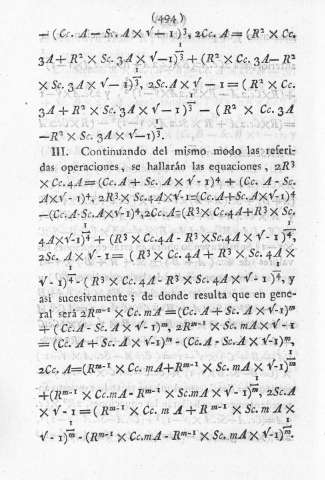 (494)
- (Cc. A - Sc. A × √ - 1)³, 2Cc. A = (R² × Cc.
3A + R² × Sc. 3A × √-1)^{1/3} + (R² × Cc. 3A - R²
× Sc. 3A × √-1)^{1/3}, 2Sc. A × √ - 1 = (R² × Cc.
3A + R² × Sc. 3A × √-1)^{1/3} - (R² × Cc. 3A
- R² × Sc. 3A × √-1)^{1/3}.
III. Continuando del mismo modo las referi-
das operaciones, se hallarán las equaciones, 2R³
× Cc. 4A = (Cc. A + Sc. A × √ - 1)⁴ + (Cc. A - Sc.
A×√-1)⁴, 2R³ × Sc.4A×√-1=(Cc.A+Sc.A×√-1)⁴
-(Cc.A-Sc.A×√-1)⁴, 2Cc.A=(R³×Cc.4A+R³× Sc.
4A×√-1)^{1/4} + (R³ × Cc.4A - R³ ×Sc.4A × √-1)^{1/4},
2Sc. A × √-1 = (R³ × Cc. 4A + R³ × Sc. 4A ×
√-1)^{1/4} - (R³ × Cc.4A - R³ × Sc. 4A × √-1)^{1/4}, y
asi sucesivamente; de donde resulta que en gene-
ral será 2R^{m-1} × Cc. mA = (Cc. A + Sc. A × √-1)^m
+ (Cc.A - Sc. A × √-1)^m, 2R^{m-1} × Sc. mA × √-1
= (Cc. A + Sc. A × √-1)^m - (Cc.A - Sc. A × √-1)^m,
2Cc. A=(R^{m-1} × Cc. mA+R^{m-1} × Sc. mA × √-1)^{1/m}
+(R^{m-1} × Cc.mA - R^{m-1} × Sc.mA × √-1)^{1/m}, 2Sc.A
× √-1 = (R^{m-1} × Cc. m A + R^{m-1} × Sc. m A ×
√-1)^{1/m} - (R^{m-1} × Cc.mA - R^{m-1} × Sc. mA × √-1)^{1/m}.